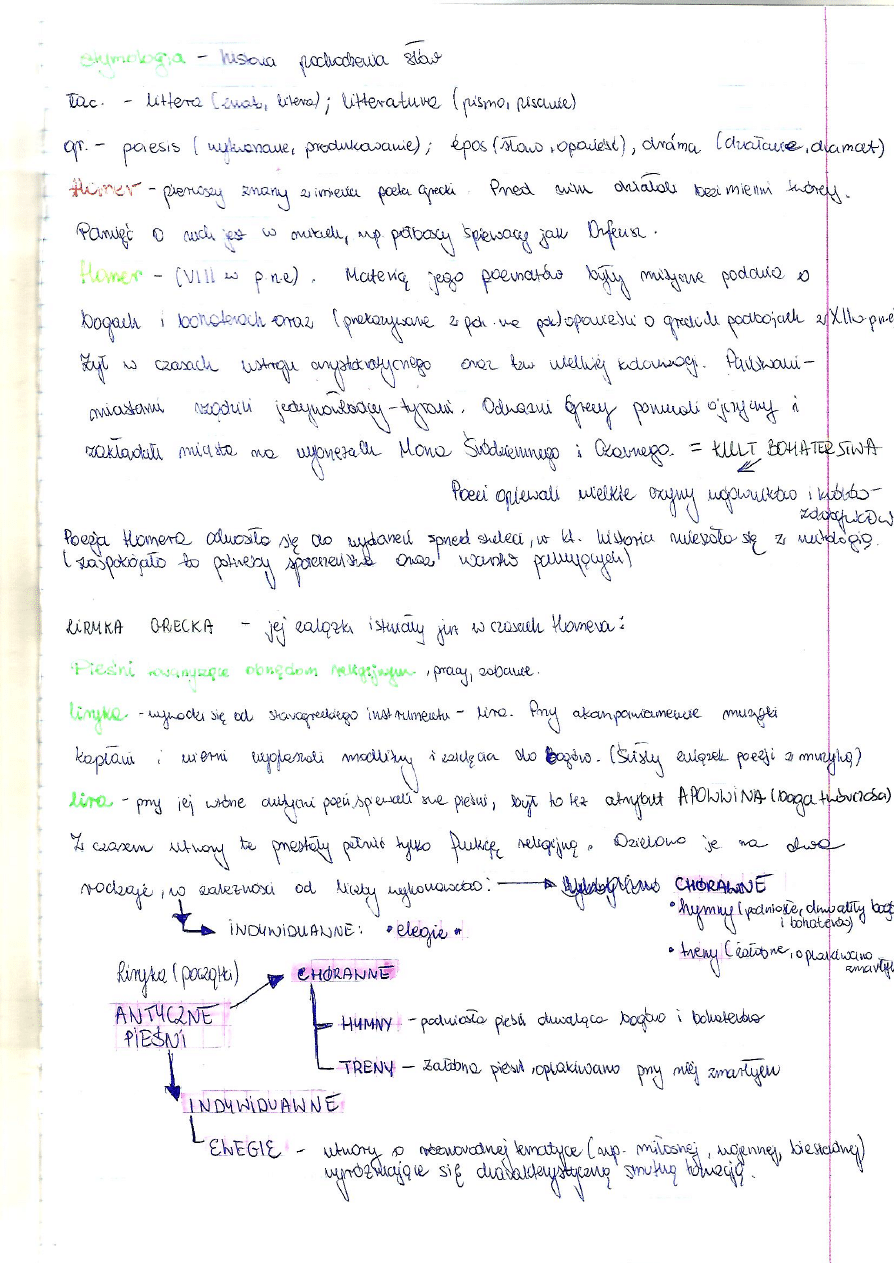 etymologia – historia pochodzenia słów
łac. – littera (znak, litera); litteratura (pismo, pisanie)
gr. – poiesis (wykonanie, produkowanie); épos (słowo, opowieść), dráma (działanie, dramat)
Homer – pierwszy znany z imienia poeta grecki. Przed nim działali bezimienni twórcy.
Pamięć o nich jest w mitach, np. półboscy śpiewacy jak Orfeusz.
Homer – (VIII w p.n.e). Materią jego poematów były mityczne podania o
bogach i bohaterach oraz (przekazywane z pok. na pok) opowieści o greckich podbojach z XII w p.n.e
Żył w czasach ustroju arystokratycznego oraz tzw wielkiej kolonizacji. Państwami–
miastami rządzili jedynowładcy – tyrani. Odważni Grecy porzucali ojczyzny i
zakładali miasta na wybrzeżach Morza Śródziemnego i Czarnego. = KULT BOHATERSTWA
Poeci opiewali wielkie czyny wojowników i
Poezja Homera odnosiła się do wydarzeń sprzed stuleci, w kt. historia mieszała się z mitologią.
(zaspokajało to potrzeby społeczeństwa oraz warstw panujących)
LIRYKA GRECKA – jej zalążki istniały już w czasach Homera:
Pieśni towarzyszące obrzędom religijnym, pracy, zabawie.
liryka – wywodzi się od starogreckiego instrumentu – lira. Przy akompaniamencie muzyki
kapłani i wierni wygłaszali modlitwy i zaklęcia do bogów. (Ścisły związek poezji z muzyką)
lira – przy jej wtórze antyczni poeci śpiewali swe pieśni, był to też atrybut APOLLINA (boga twórczości)
Z czasem utwory te przestały pełnić tylko funkcję religijną. Dzielono je na dwa
rodzaje, w zależności od liczby wykonawców: → CHÓRALNE
• hymny (podniosłe, chwaliły bogów
i bohaterów)
→ INDYWIDUALNE: • elegie •
• treny (żałobne, opłakiwano
zmarłych
Liryka (początki)
CHÓRALNE
ANTYCZNE
PIEŚNI
HYMNY – podniosła pieśń chwaląca bogów i bohaterów
TRENY – żałobna pieśń, opłakiwano przy niej zmarłych
INDYWIDUALNE
ELEGIE – utwory o różnorodnej tematyce (np. miłosnej, wojennej, biesiadnej)
wyróżniające się charakterystyczną smutną tonacją.